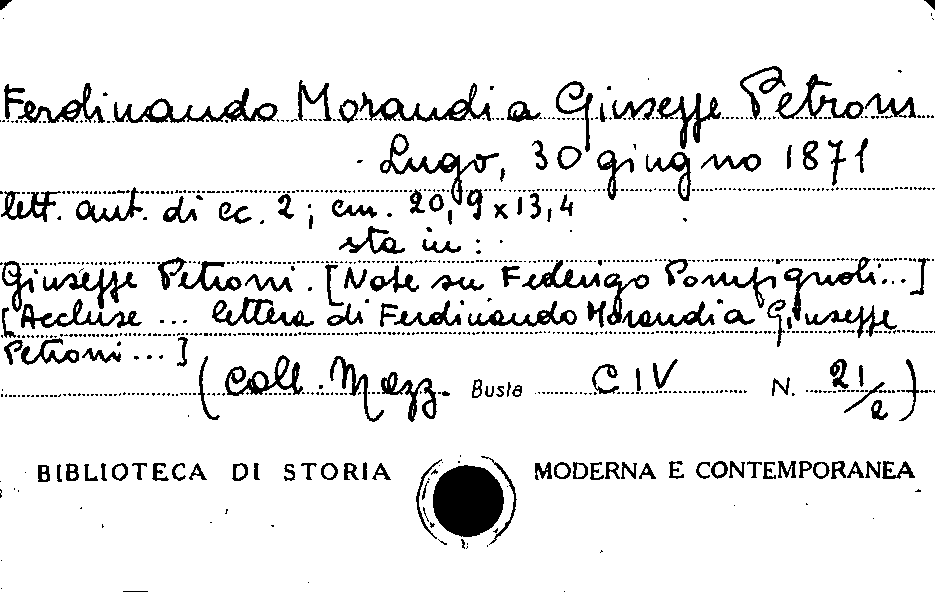 Ferdinando Morandi a Giuseppe Petroni
Lugo, 30 giugno 1871
lett. aut. di cc. 2; cm. 20,9 x 13,4
sta in:
Giuseppe Petroni. [Note su Federigo Pompignoli...]
[Accluse ... lettera di Ferdinando Morandi a Giuseppe
Petroni...]
(Coll. Mazz. Busta CIV N. 21/2)
BIBLIOTECA DI STORIA MODERNA E CONTEMPORANEA